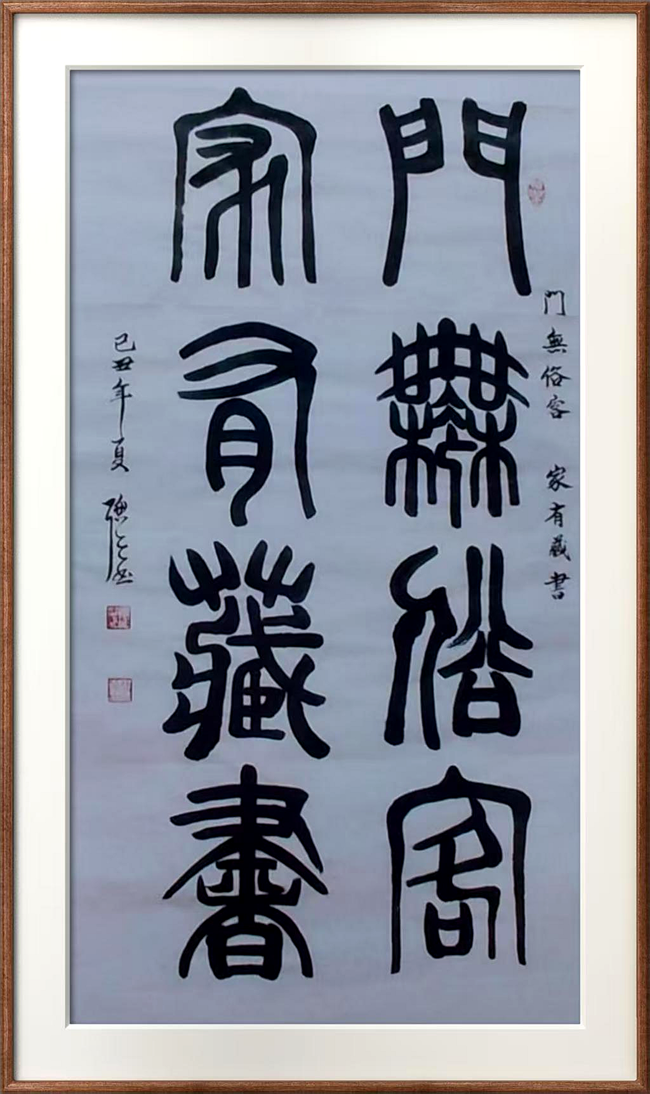 門無俗客
家有藏書
門無俗客 家有藏書
己丑年夏